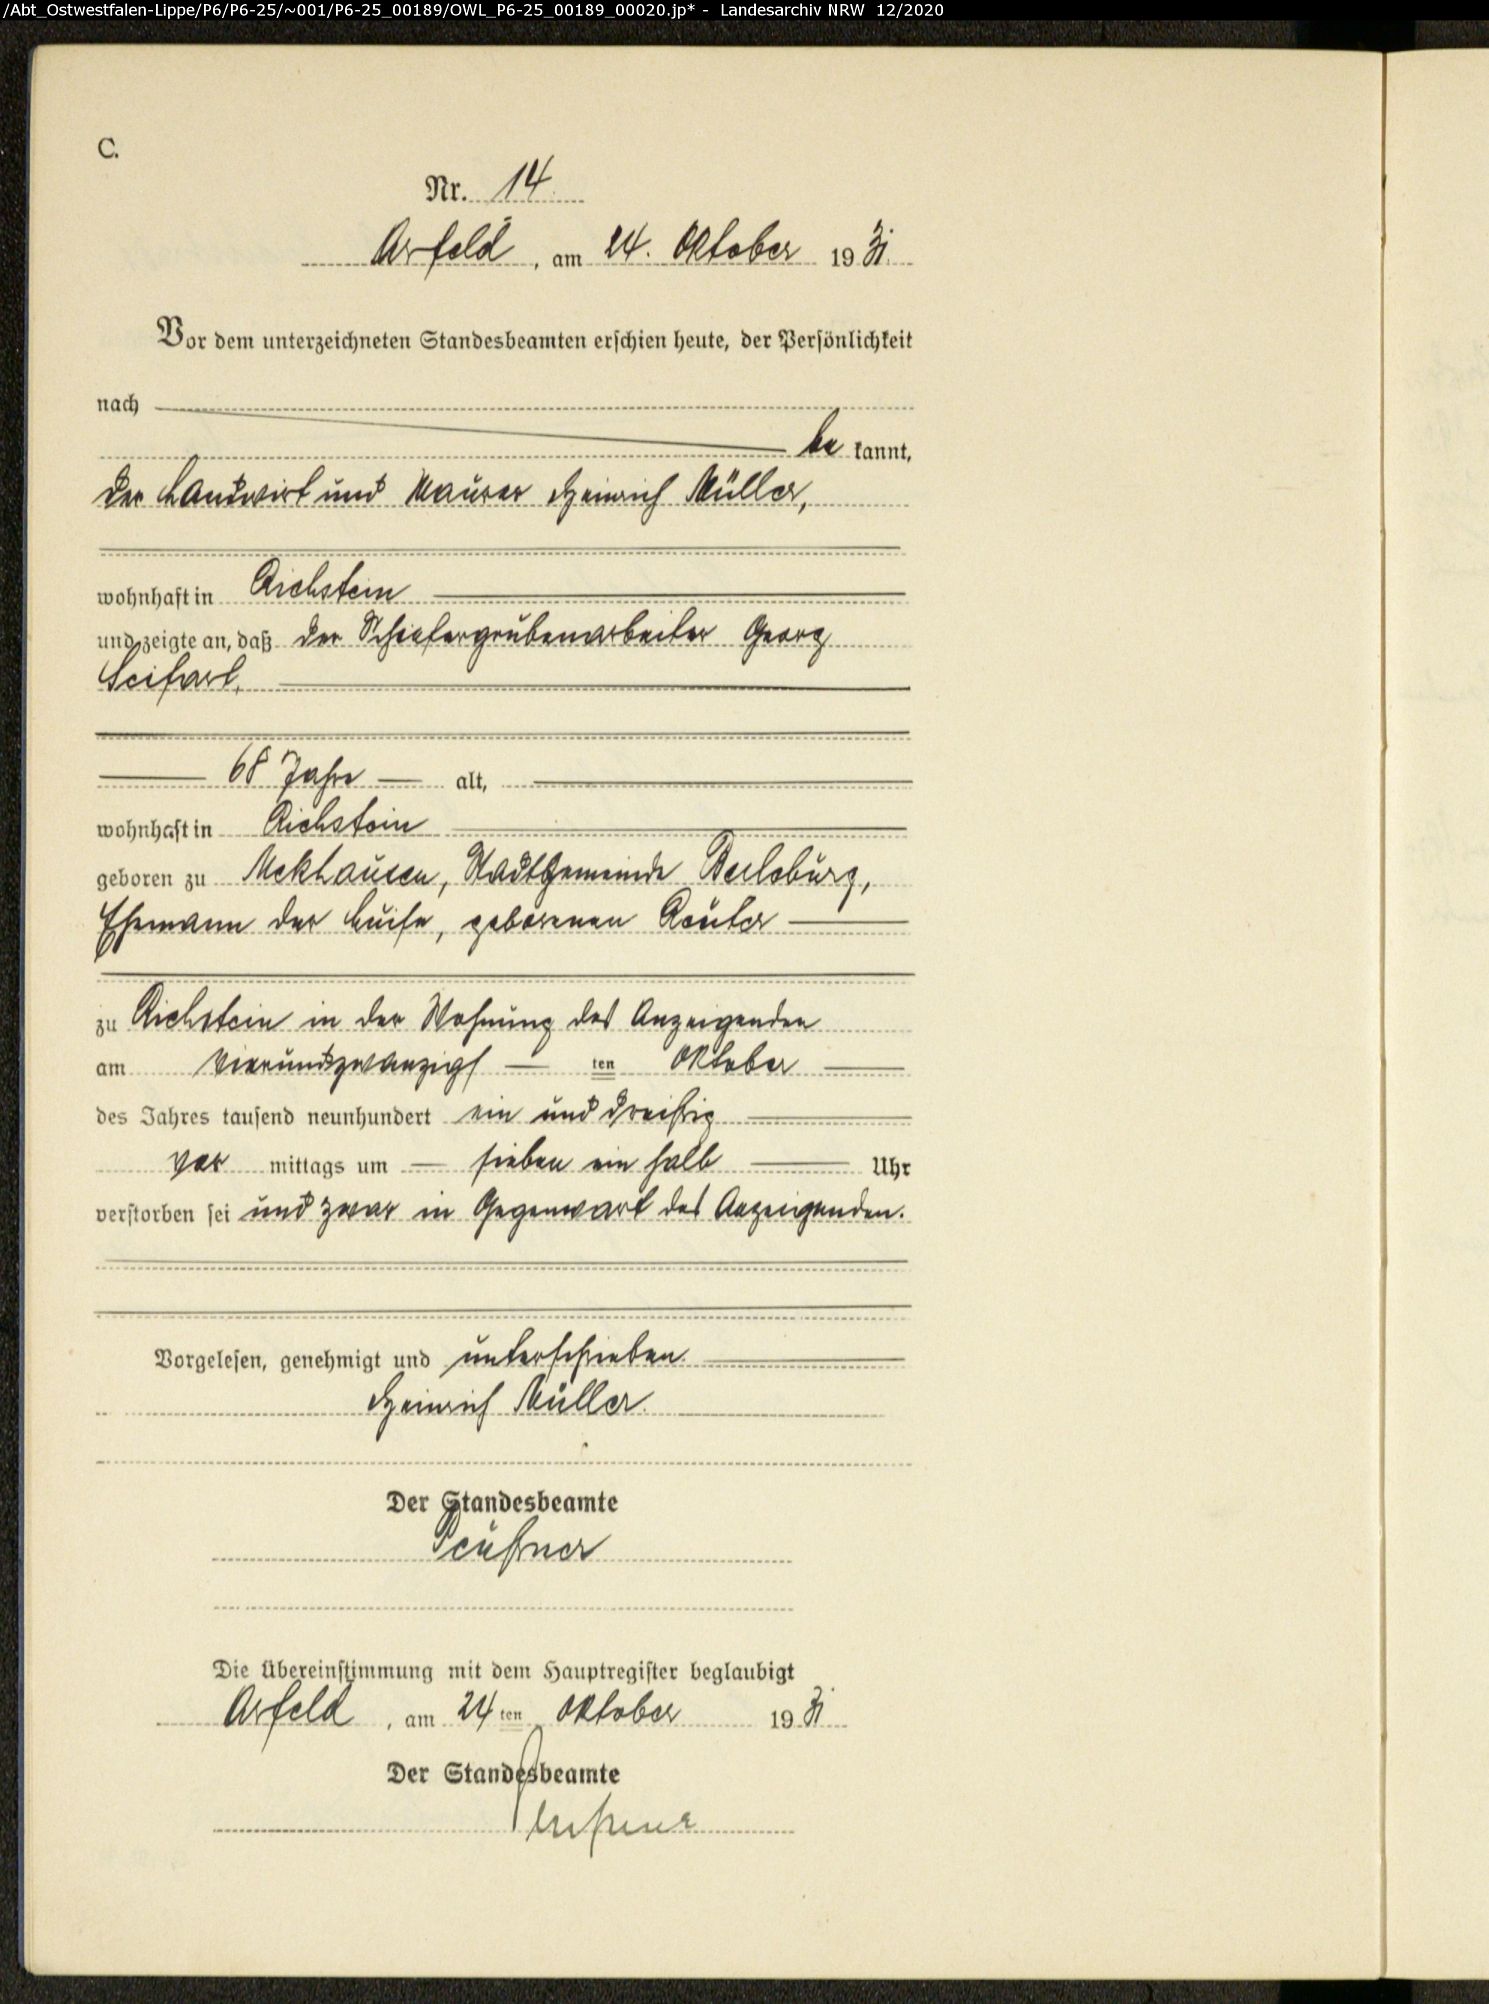 /Abt_Ostwestfalen-Lippe/P6/P6-25/~001/P6-25_00189/OWL_P6-25_00189_00020.jp* - Landesarchiv NRW 12/2020
C.
Nr. 14
Arfeld, am 24. Oktober 1931.
Vor dem unterzeichneten Standesbeamten erschien heute, der Persönlichkeit
nach
be kannt,
der Landwirt und Maurer Heinrich Müller,
wohnhaft in Richstein
und zeigte an, daß der Schiefergrubenarbeiter Georg
Seifart,
68 Jahre alt,
wohnhaft in Richstein
geboren zu Mekhausen, Stadtgemeinde Berleburg,
Ehemann der Luise, geborenen Reuter
zu Richstein in der Wohnung des Anzeigenden
am vierundzwanzigsten Oktober
des Jahres tausend neunhundert ein und dreißig
vor mittags um sieben ein halb Uhr
verstorben sei und zwar in Gegenwart des Anzeigenden.
Vorgelesen, genehmigt und unterschrieben.
Heinrich Müller.
Der Standesbeamte
Peußner
Die Übereinstimmung mit dem Hauptregister beglaubigt
Arfeld, am 24ten Oktober 1931
Der Standesbeamte
Peußner